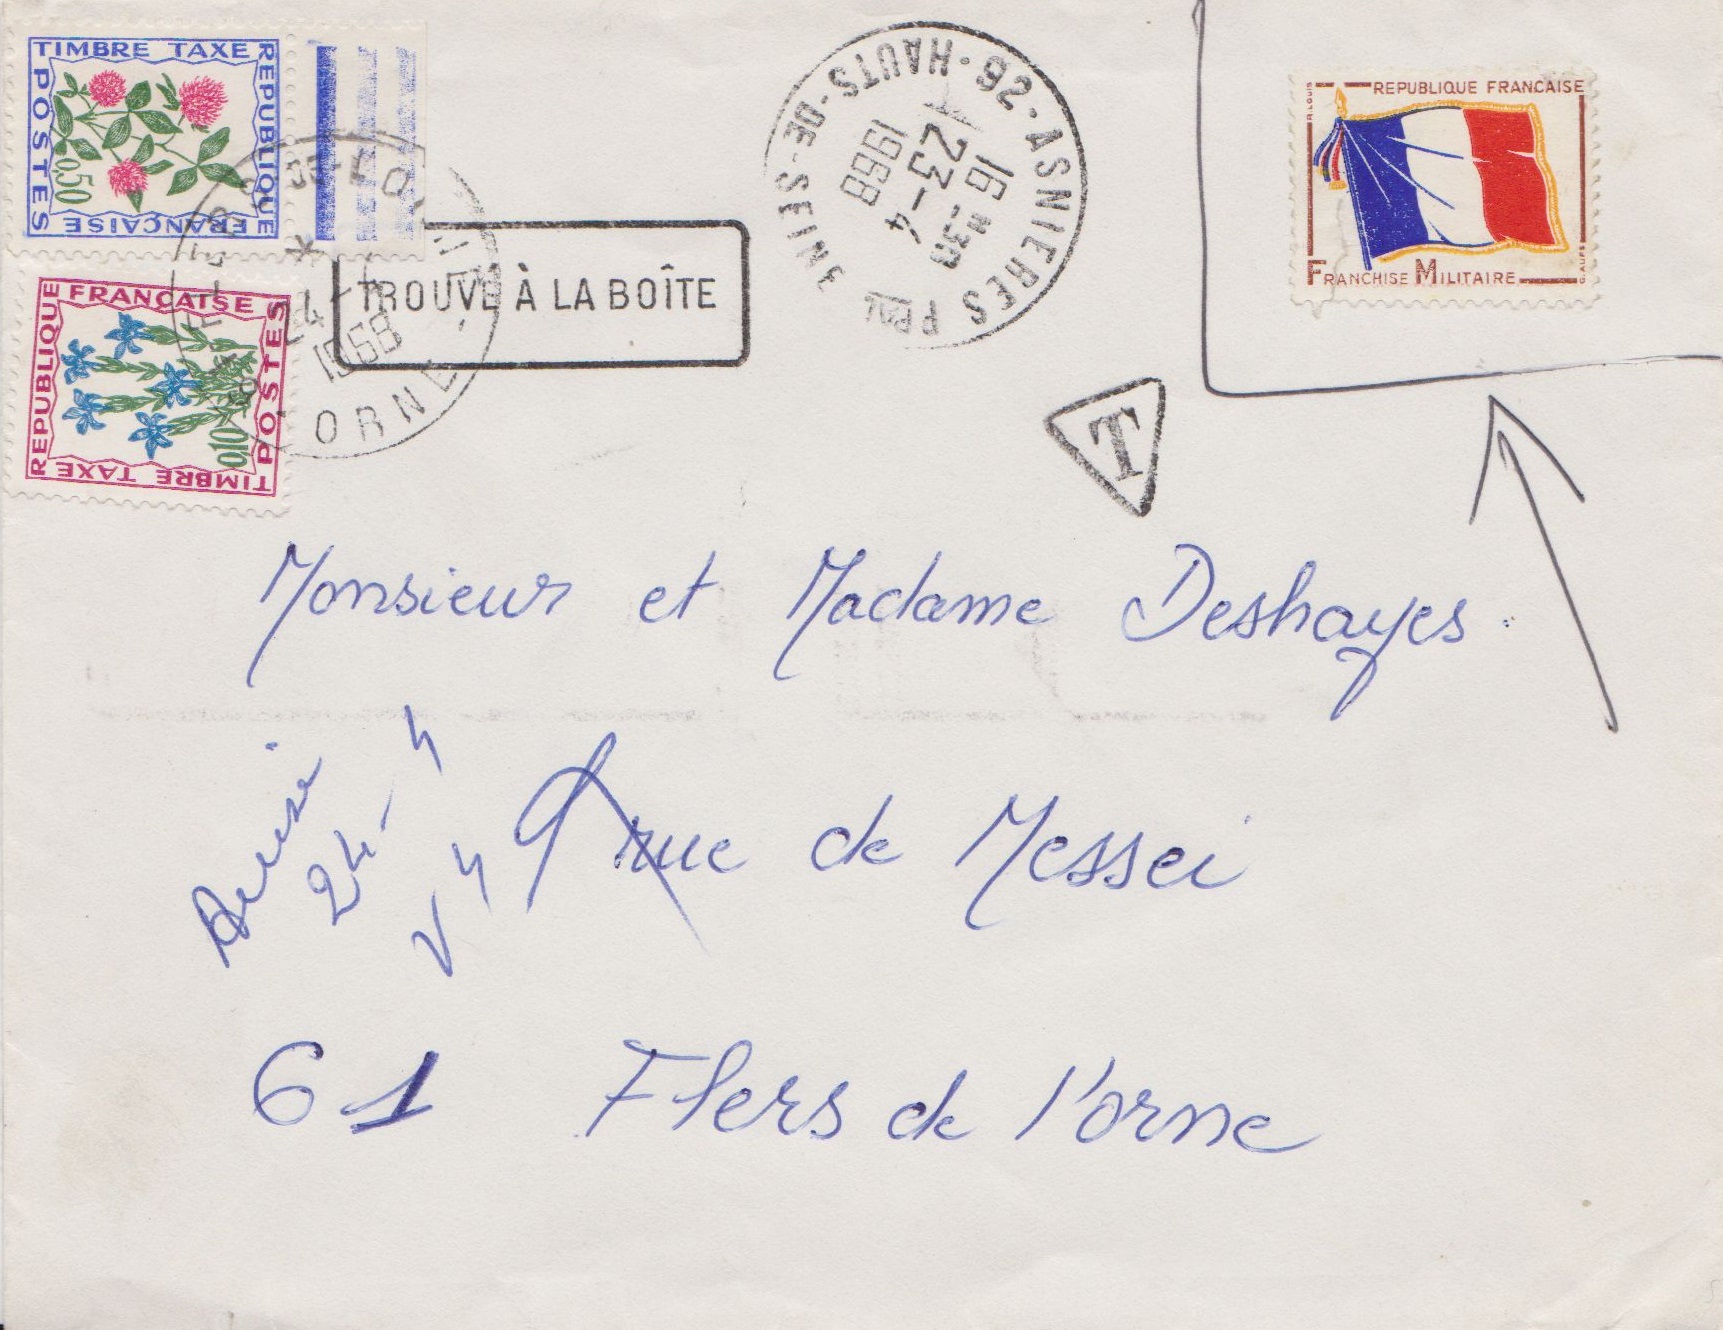 TIMBRE TAXE
REPUBLIQUE
FRANÇAISE
POSTES
0,50
FRANÇAISE
REPUBLIQUE
POSTES
TIMBRE TAXE
0,10
24-4
1968
ORNE
TROUVÉ À LA BOÎTE
26 - ASNIERES PPAL
HAUTS-DE-SEINE
16 H30
23-4
1968
REPUBLIQUE FRANÇAISE
FRANCHISE MILITAIRE
T
Monsieur et Madame Deshayes
24-4
rue de Messei
61 Flers de l'orne